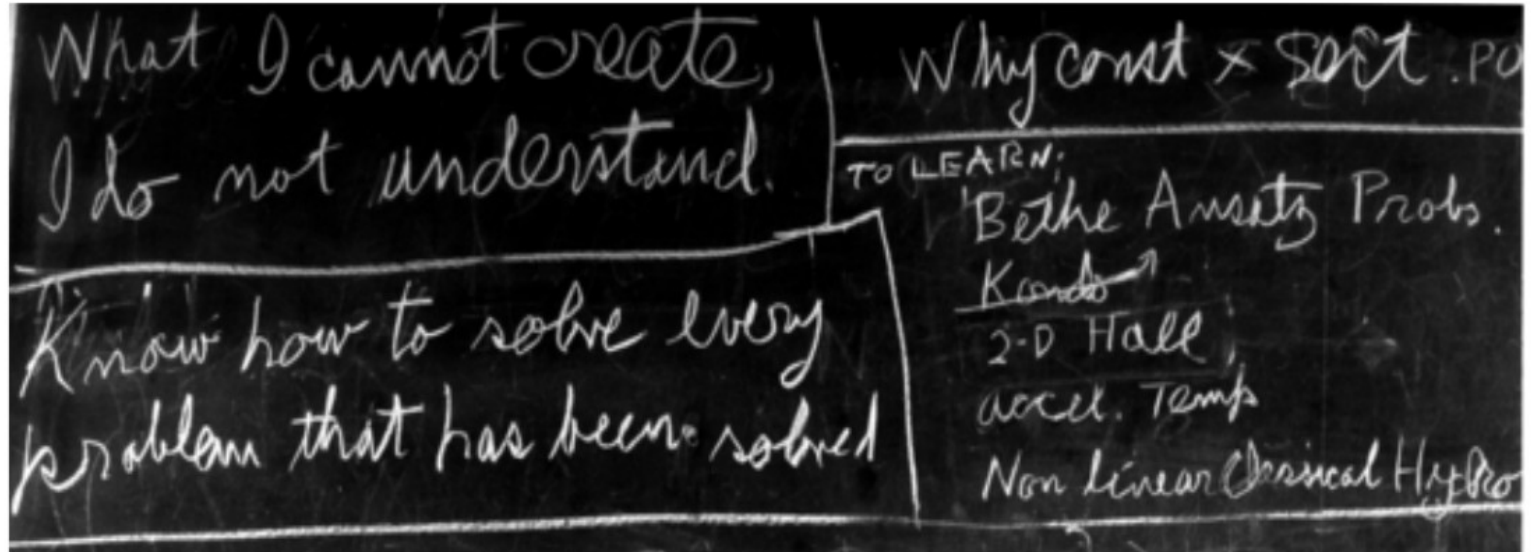 What I cannot create,
I do not understand.
Know how to solve every
problem that has been solved
Why const × sort . PO
TO LEARN:
Bethe Ansatz Probs.
Kondo
2-D Hall
accel. Temp
Non linear Classical Hydro